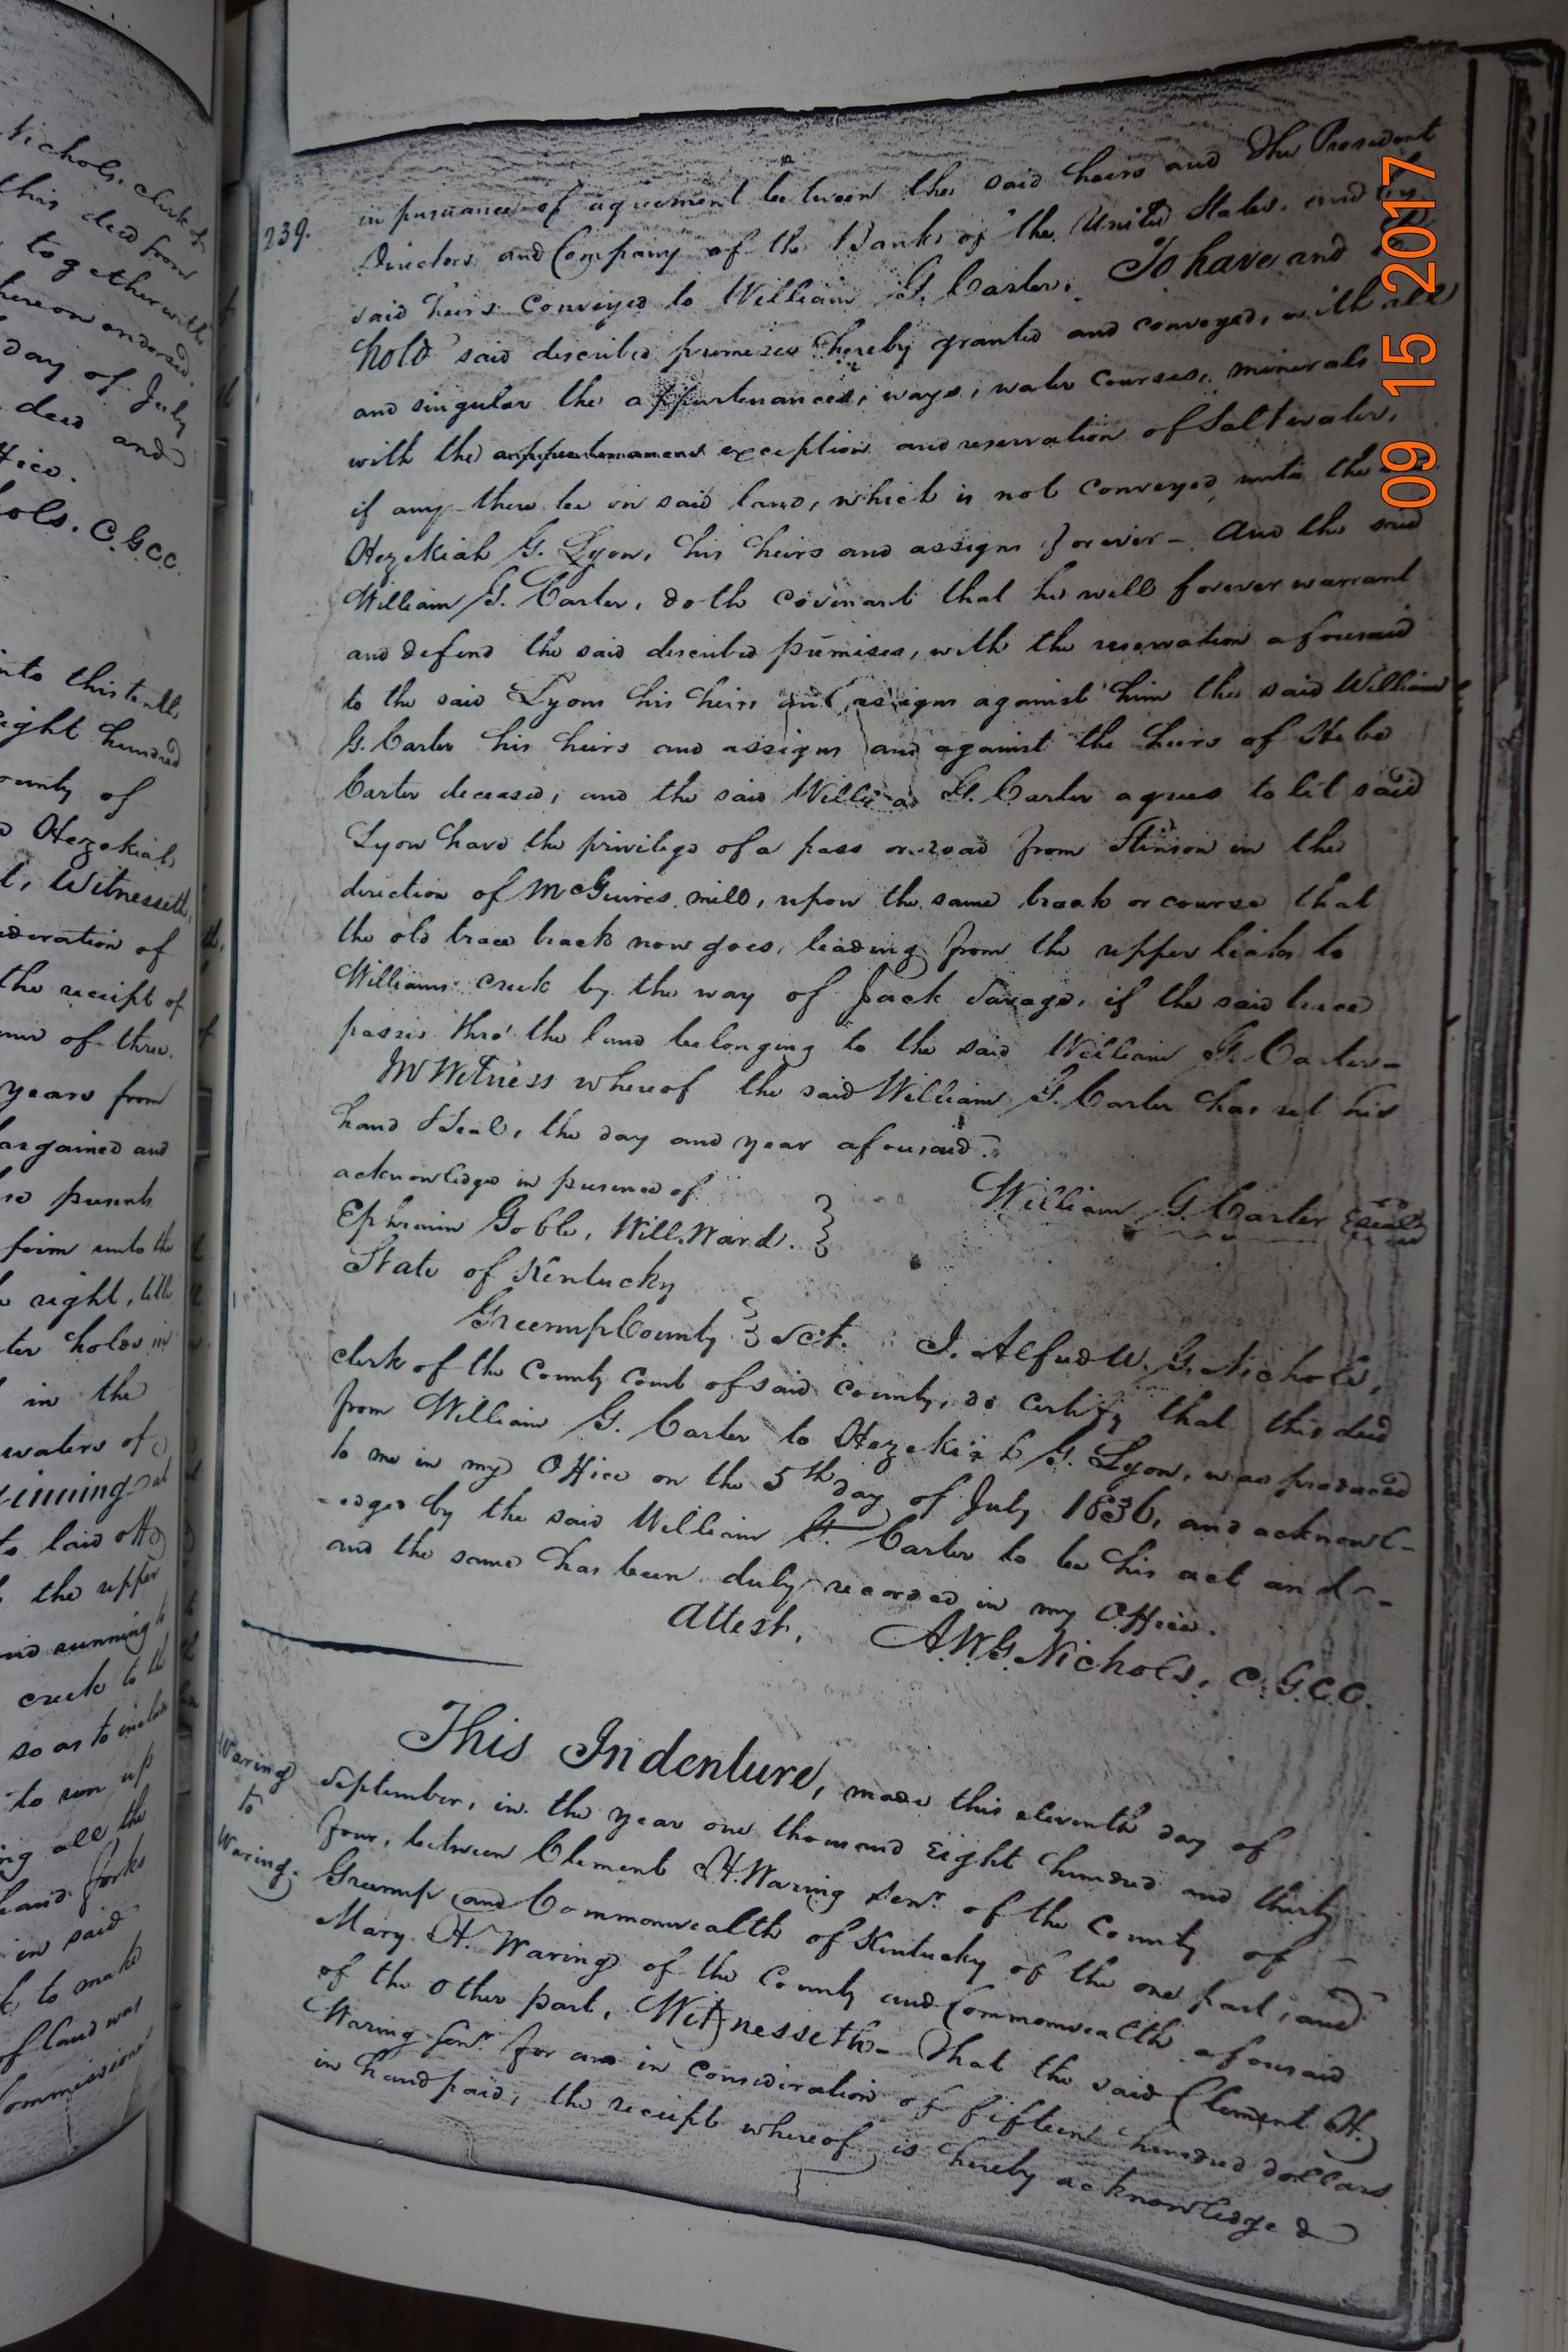 Nichols, clerk of
this deed from
together with
hereon endorsed.
day of July
deed and
ffice.
ols. C.G.C.C.
into this
eight hundred
ounty of
Hezekiah
t, Witnesseth,
ideration of
the receipt of
of three
years from
argained and
presents
firm unto the
right, title
ter holds in
in the
waters of
ginning at
laid off
the upper
and running
creek to the
so as to include
to run up
ng all the
and forks
in said
to make
of land was
ommissions
239.
in pursuance of agreement between the said heirs and The President
Directors and Company of the Bank of the United States, and by
said heirs conveyed to William G. Carter. To have and to
hold said described premises hereby granted and conveyed, with all
and singular the appurtenances, ways, water courses, minerals
with the appurtenances exception and reservation of Salt water,
if any there be in said land, which is not conveyed unto the
Hezekiah G. Lyon, his heirs and assigns forever - And the said
William G. Carter, doth covenant that he will forever warrant
and defend the said described premises, with the reservation aforesaid
to the said Lyon his heirs and assigns against him the said William
G. Carter his heirs and assigns and against the heirs of Hebe
Carter deceased, and the said William G. Carter agrees to let said
Lyon have the privilege of a pass or road from Stinson in the
direction of McGuires mill, upon the same track or course that
the old trace track now goes, leading from the upper licks to
Williams creek by the way of Jack Savage, if the said trace
passes thro' the land belonging to the said William G. Carter -
In Witness whereof the said William G. Carter has set his
hand & Seal, the day and year aforesaid.
acknowledged in presence of
Ephraim Goble, Will. Ward. }
William G. Carter Seal
State of Kentucky
Greenup County } Sct. I. Alfred W. G. Nichols,
clerk of the County Court of said county, do certify that this deed
from William G. Carter to Hezekiah G. Lyon, was produced
to me in my Office on the 5th day of July 1836, and acknowl-
-edged by the said William G. Carter to be his act and -
and the same has been duly recorded in my Office.
Attest, A.W.G. Nichols, C.G.C.C.
Waring
to
Waring.
This Indenture, made this eleventh day of
September, in the year one thousand Eight hundred and thirty
four, between Clement H. Waring Senr. of the County of
Greenup and Commonwealth of Kentucky of the one part, and
Mary H. Waring of the County and Commonwealth aforesaid
of the other part, Witnesseth - That the said Clement H.
Waring Senr. for and in consideration of fifteen hundred dollars
in hand paid, the receipt whereof is hereby acknowledged
09 15 2017